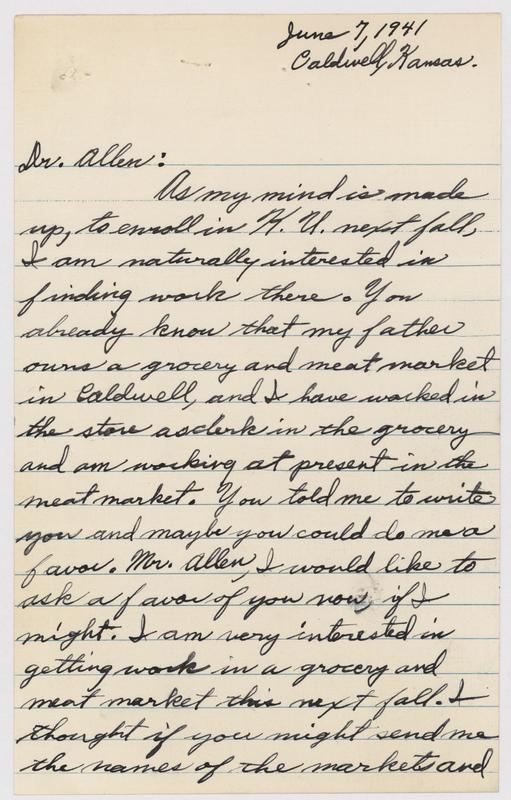 June 7, 1941
Caldwell, Kansas.
Dr. Allen:
As my mind is made
up, to enroll in K. U. next fall,
I am naturally interested in
finding work there. You
already know that my father
owns a grocery and meat market
in Caldwell, and I have worked in
the store as clerk in the grocery
and am working at present in the
meat market. You told me to write
you and maybe you could do me a
favor. Mr. Allen, I would like to
ask a favor of you now, if I
might. I am very interested in
getting work in a grocery and
meat market this next fall. I
thought if you might send me
the names of the markets and